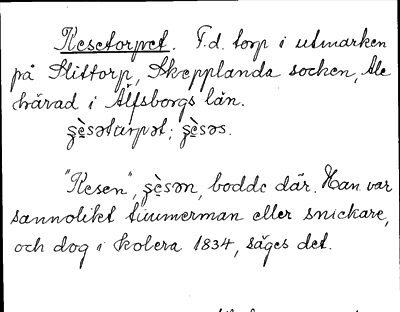 Kesetorpet. F.d. torp i utmarken
på Slittorp, Skepplanda socken, Ale
härad i Älfsborgs län.
"Kesen", boddc där. Han var
sannolikt timmerman eller snickare,
och dog i kolera 1834, säges det.